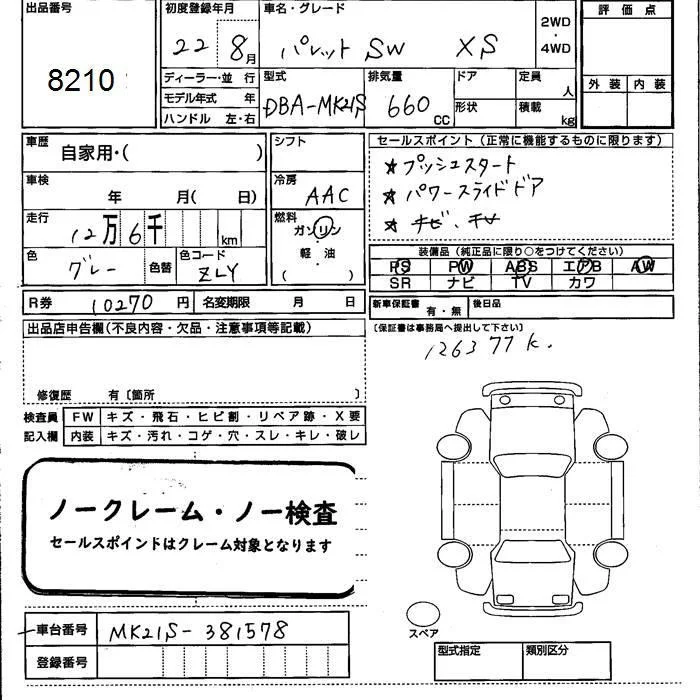 出品番号 初度登録年月 車名・グレード 評価点
8210 22 8月 パレット SW XS 2WD・4WD
ディーラー・並行 型式 排気量 ドア 定員 人 外装 内装
モデル年式 年 DBA-MK21S 660 CC 形状 積載 kg
ハンドル 左・右
車歴 自家用・( ) シフト セールスポイント(正常に機能するものに限ります)
車検 年 月( 日) 冷房 AAC ★プッシュスタート
★パワースライドドア
走行 12万6千 km 燃料 ガソリン ★キビ、キサ
軽・油
( )
色 グレー 色替 色コード ZLY 装備品(純正品に限り○をつけてください)
PS PW ABS エアB AW
SR ナビ TV カワ
R券 10270円 名変期限 月 日 新車保証書 有・無 後日品
出品店申告欄(不良内容・欠品・注意事項等記載) (保証書は事務局へ提出して下さい)
126377k.
修復歴 有〔箇所 〕
検査員 FW キズ・飛石・ヒビ割・リペア跡・X要
記入欄 内装 キズ・汚れ・コゲ・穴・スレ・キレ・破レ
ノークレーム・ノー検査
セールスポインドはクレーム対象となります
スペア
車台番号 MK21S-381578
登録番号 型式指定 類別区分